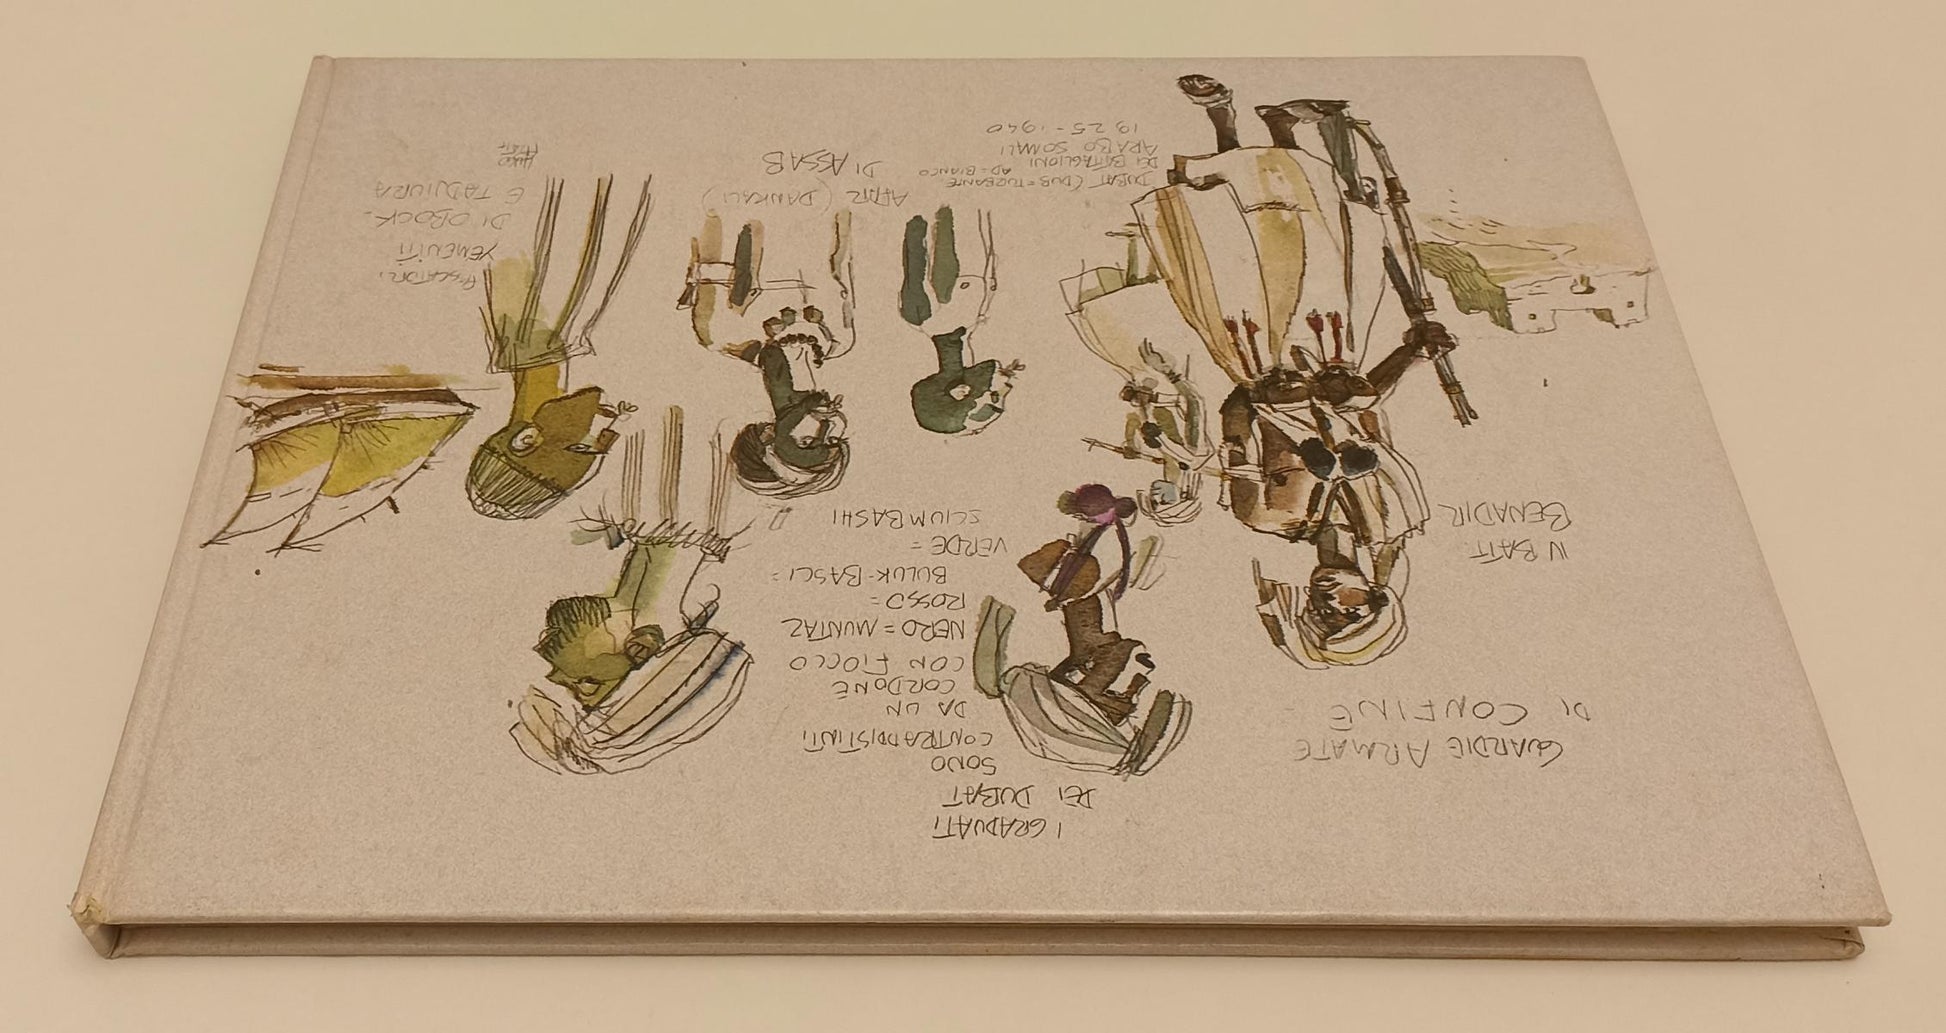 I GRADUATI
DEI DUBAT
SONO
CONTRADDISTINTI
DA UN
CORDONE
CON FIOCCO
NERO = MUNTAZ
ROSSO =
BULUK-BASCI =
VERDE =
SCIUMBASHI
GUARDIE ARMATE
DI CONFINE -
IV BATT.
BENADIR
DUBAT (DUB = TURBANTE
AD = BIANCO
DEI BATTAGLIONI
ARABO SOMALI
1925-1940
AFAR (DANKALI)
DI ASSAB
PESCATORI,
YEMENITI
DI OBOCK -
E TADJURA
HUGO
PRATT